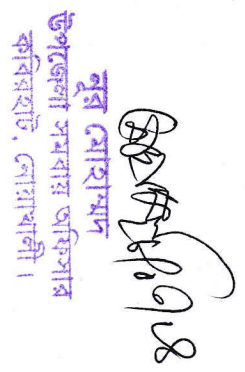 নূর মোহাম্মদ
উপজেলা সমবায় অফিসার
কবিরহাট, নোয়াখালী।